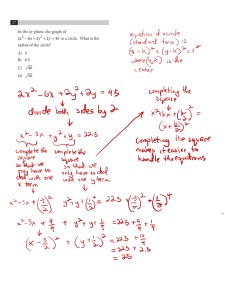 27
In the xy-plane, the graph of
2x² − 6x + 2y² + 2y = 45 is a circle. What is the
radius of the circle?
A) 5
B) 6.5
C) √40
D) √50
equation of a circle
(standard form) is
(x-h)² + (y-k)² = r²
where (h,k) is the
center
2x²-6x +2y²+2y = 45
divide both sides by 2
x²-3x + y²+y = 22.5
complete the
square
so that we
only have to
deal with one
x term
complete the
square
so that we
only have to deal
with one y term
completing the
square
x²+bx+(b/2)² =
(x+b/2)²
completing the square
makes it easier to
handle the equations
x²-3x+(3/2)² y²+y+(1/2)² = 22.5 +(3/2)²+(1/2)²
x²-3x + 9/4 + y²+y+1/4 = 22.5+9/4+1/4
(x-3/2)² + (y+1/2)² = 22.5 + 10/4
= 22.5 + 2.5
= 25